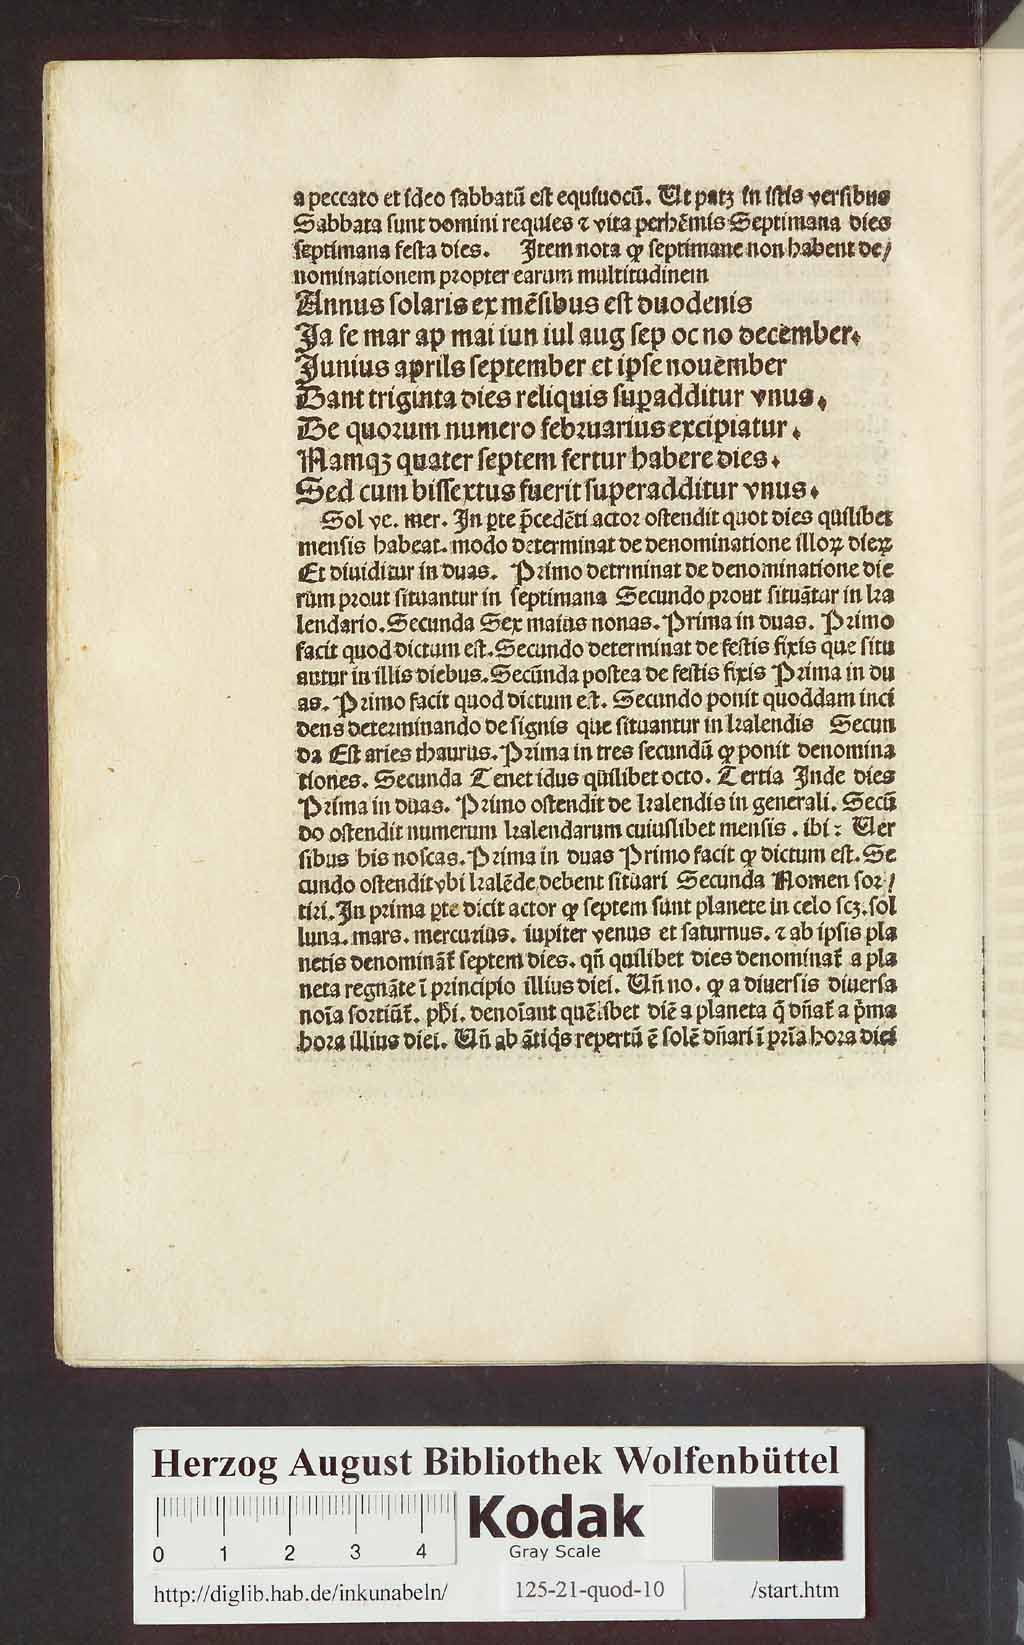 a peccato et ideo sabbatū est equiuocū. Ut patꝫ in istis versibus
Sabbata sunt domini requies ⁊ vita perhēmis Septimana dies
septimana festa dies. Item nota ꝙ septimane non habent de/
nominationem propter earum multitudinem
Annus solaris ex mēsibus est duodenis
Ja fe mar ap mai iun iul aug sep oc no december.
Junius aprils september et ipse nouember
Dant triginta dies reliquis suꝑadditur vnus.
De quorum numero februarius excipiatur.
Namqꝫ quater septem fertur habere dies.
Sed cum bissextus fuerit superadditur vnus.
Sol ve. mer. In ꝑte p̄cedēti actor ostendit quot dies quilibet
mensis habeat. modo determinat de denominatione illoꝝ dieꝝ
Et diuiditur in duas. Primo detrminat de denominatione die
rum prout situantur in septimana Secundo prout situātur in ka
lendario. Secunda Sex maius nonas. Prima in duas. Primo
facit quod dictum est. Secundo determinat de festis fixis que situ
antur in illis diebus. Secūnda postea de festis fixis Prima in du
as. Primo facit quod dictum est. Secundo ponit quoddam inci
dens determinando de signis que situantur in kalendis Secun
da Est aries thaurus. Prima in tres secundū ꝙ ponit denomina
tiones. Secunda Tenet idus quilibet octo. Tertia Inde dies
Prima in duas. Primo ostendit de kalendis in generali. Secū
do ostendit numerum kalendarum cuiuslibet mensis . ibi: Uer
sibus his noscas. Prima in duas Primo facit ꝙ dictum est. Se
cundo ostendit vbi kalēde debent situari Secunda Nomen sor/
tiri. In prima ꝑte dicit actor ꝙ septem sunt planete in celo scꝫ. sol
luna. mars. mercurius. iupiter venus et saturnus. ⁊ ab ipsis pla
netis denomināt᷑ septem dies. qn̄ quilibet dies denominat᷑ a pla
neta regnāte ī principio illius diei. Un̄ no. ꝙ a diuersis diuersa
noīa sortiūt᷑. pħi. denoīant quēlibet diē a planeta q̄ dn̄at᷑ a p̄ma
hora illius diei. Un̄ ab ātiq̇s repertū ē solē dn̄ari ī pri̅a hora diei
Herzog August Bibliothek Wolfenbüttel
0 1 2 3 4
Kodak
Gray Scale
http://diglib.hab.de/inkunabeln/ 125-21-quod-10 /start.htm